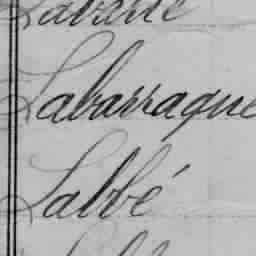 Labarre
Labarraque
Labbé